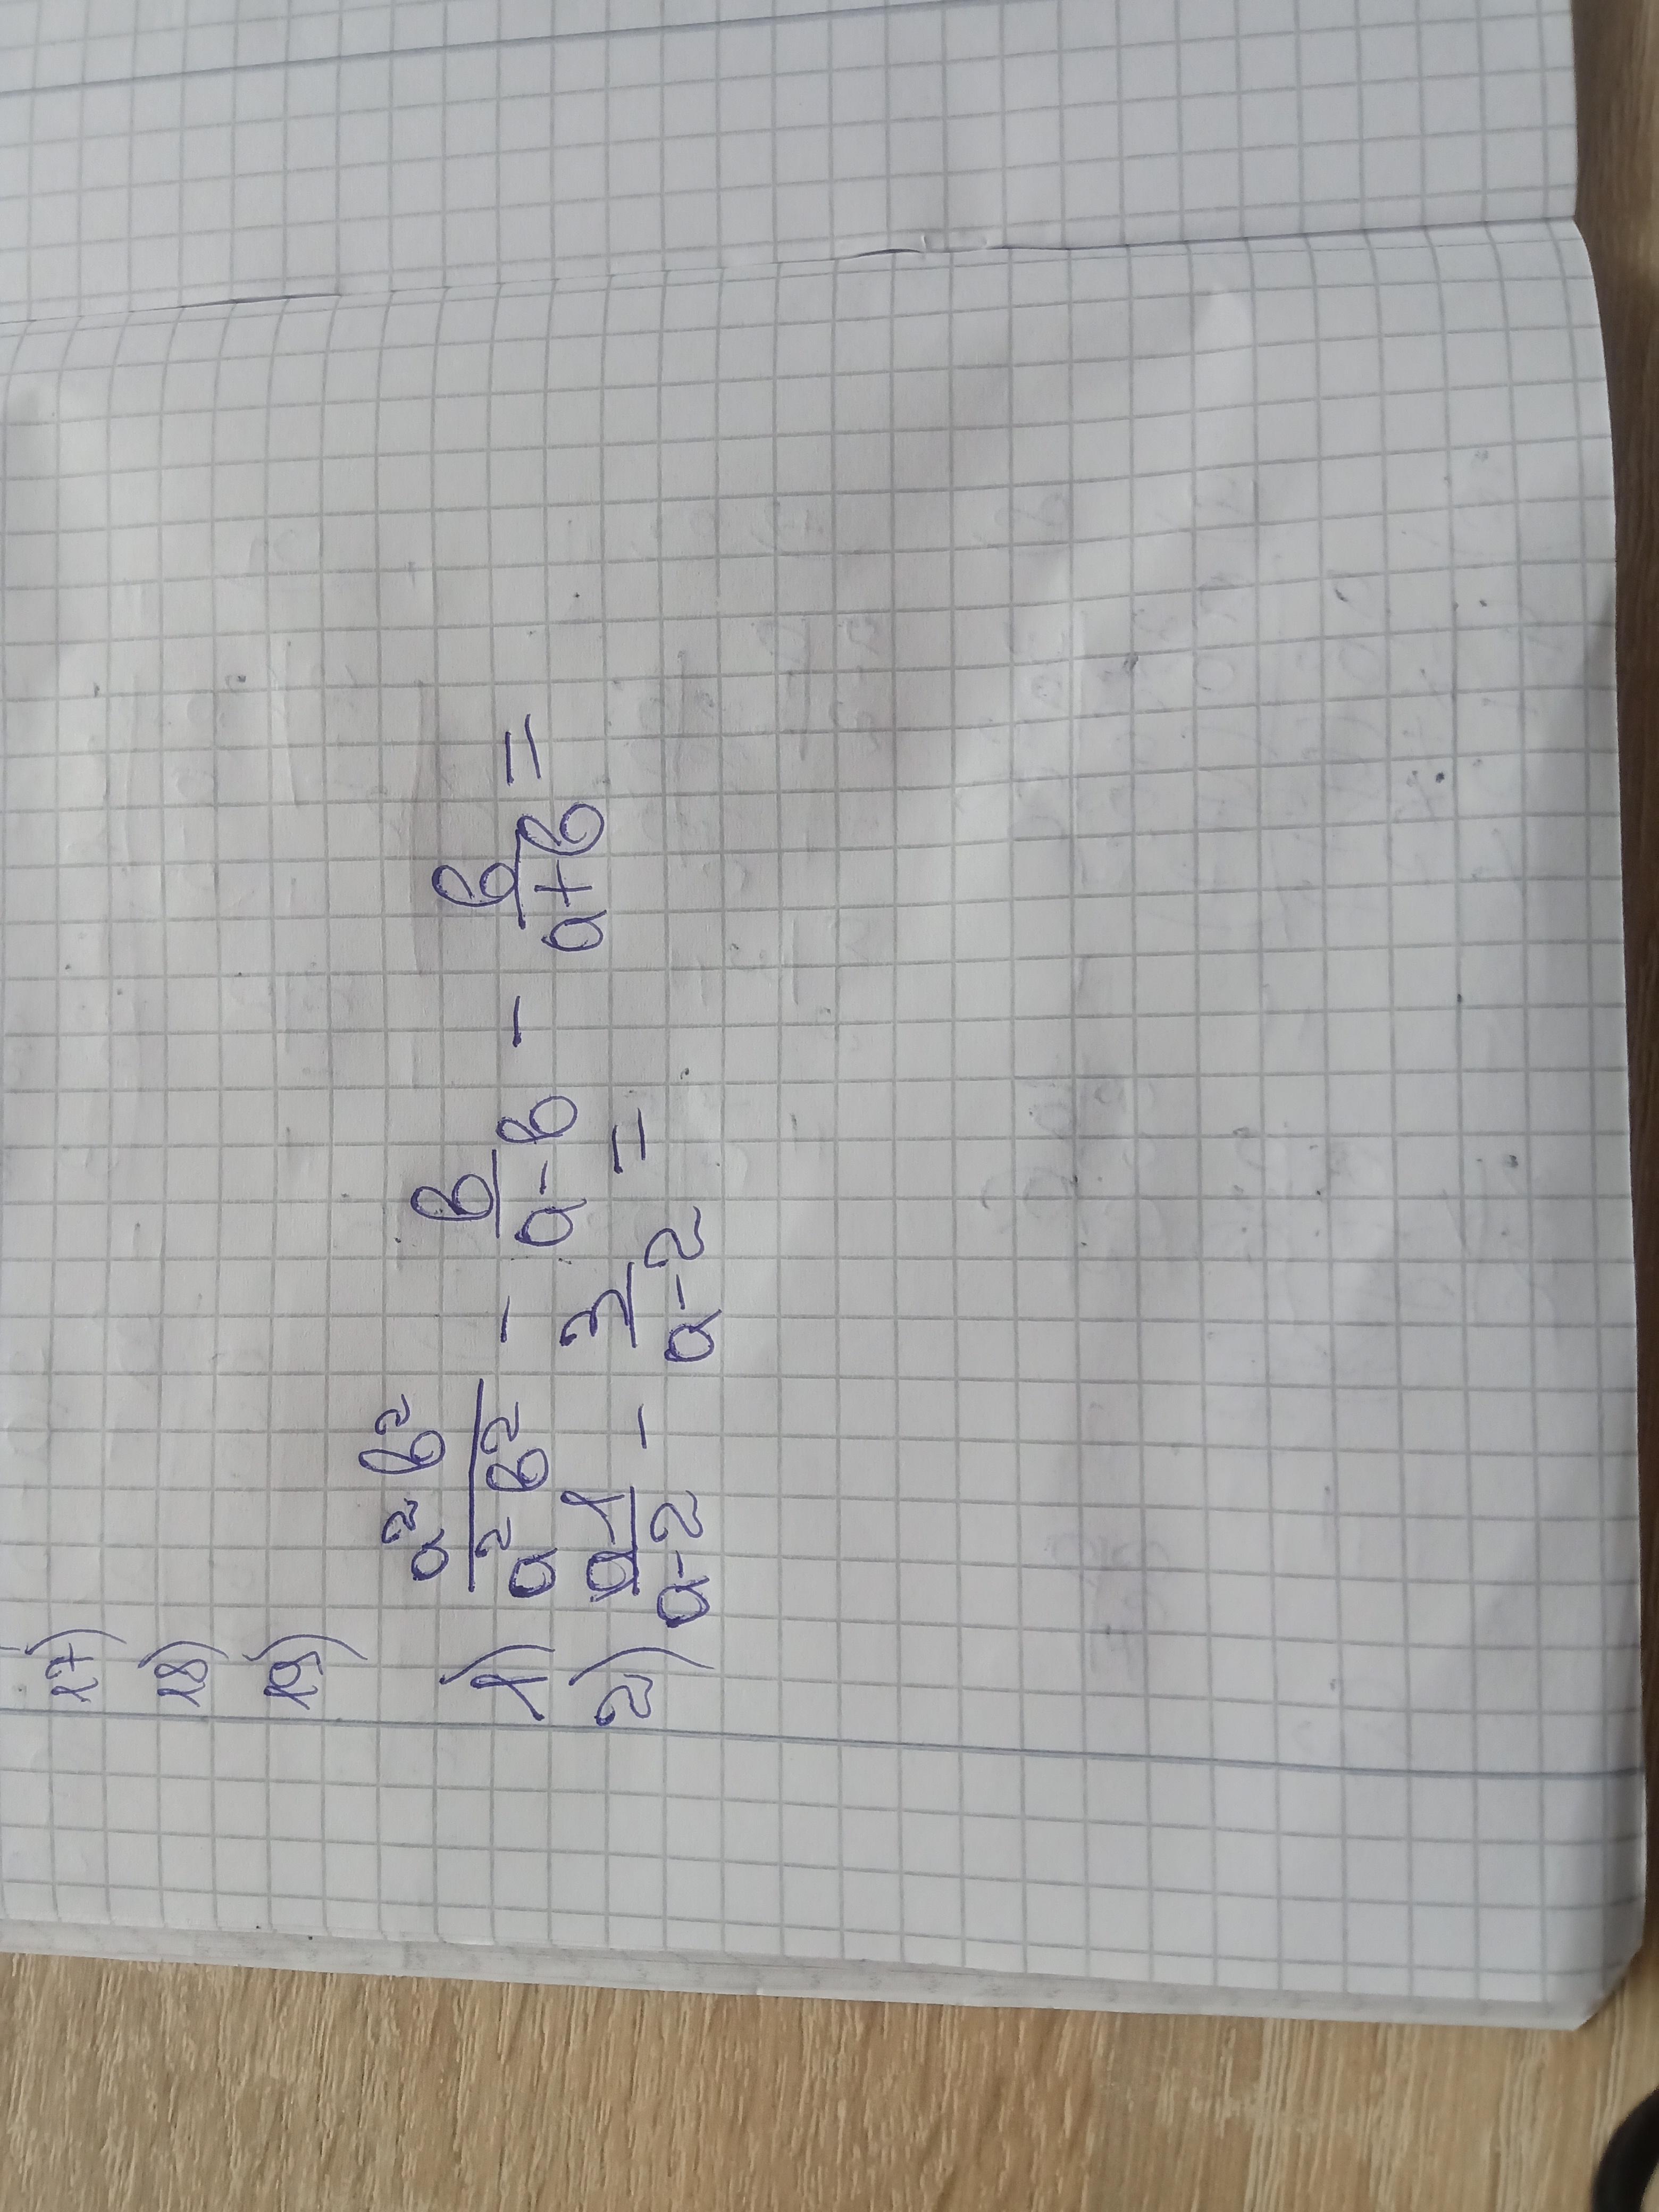 27)
28)
29)
1) a²b²/a²b² - b/a-b - b/a+b =
2) a-1/a-2 - 3/a-2 =